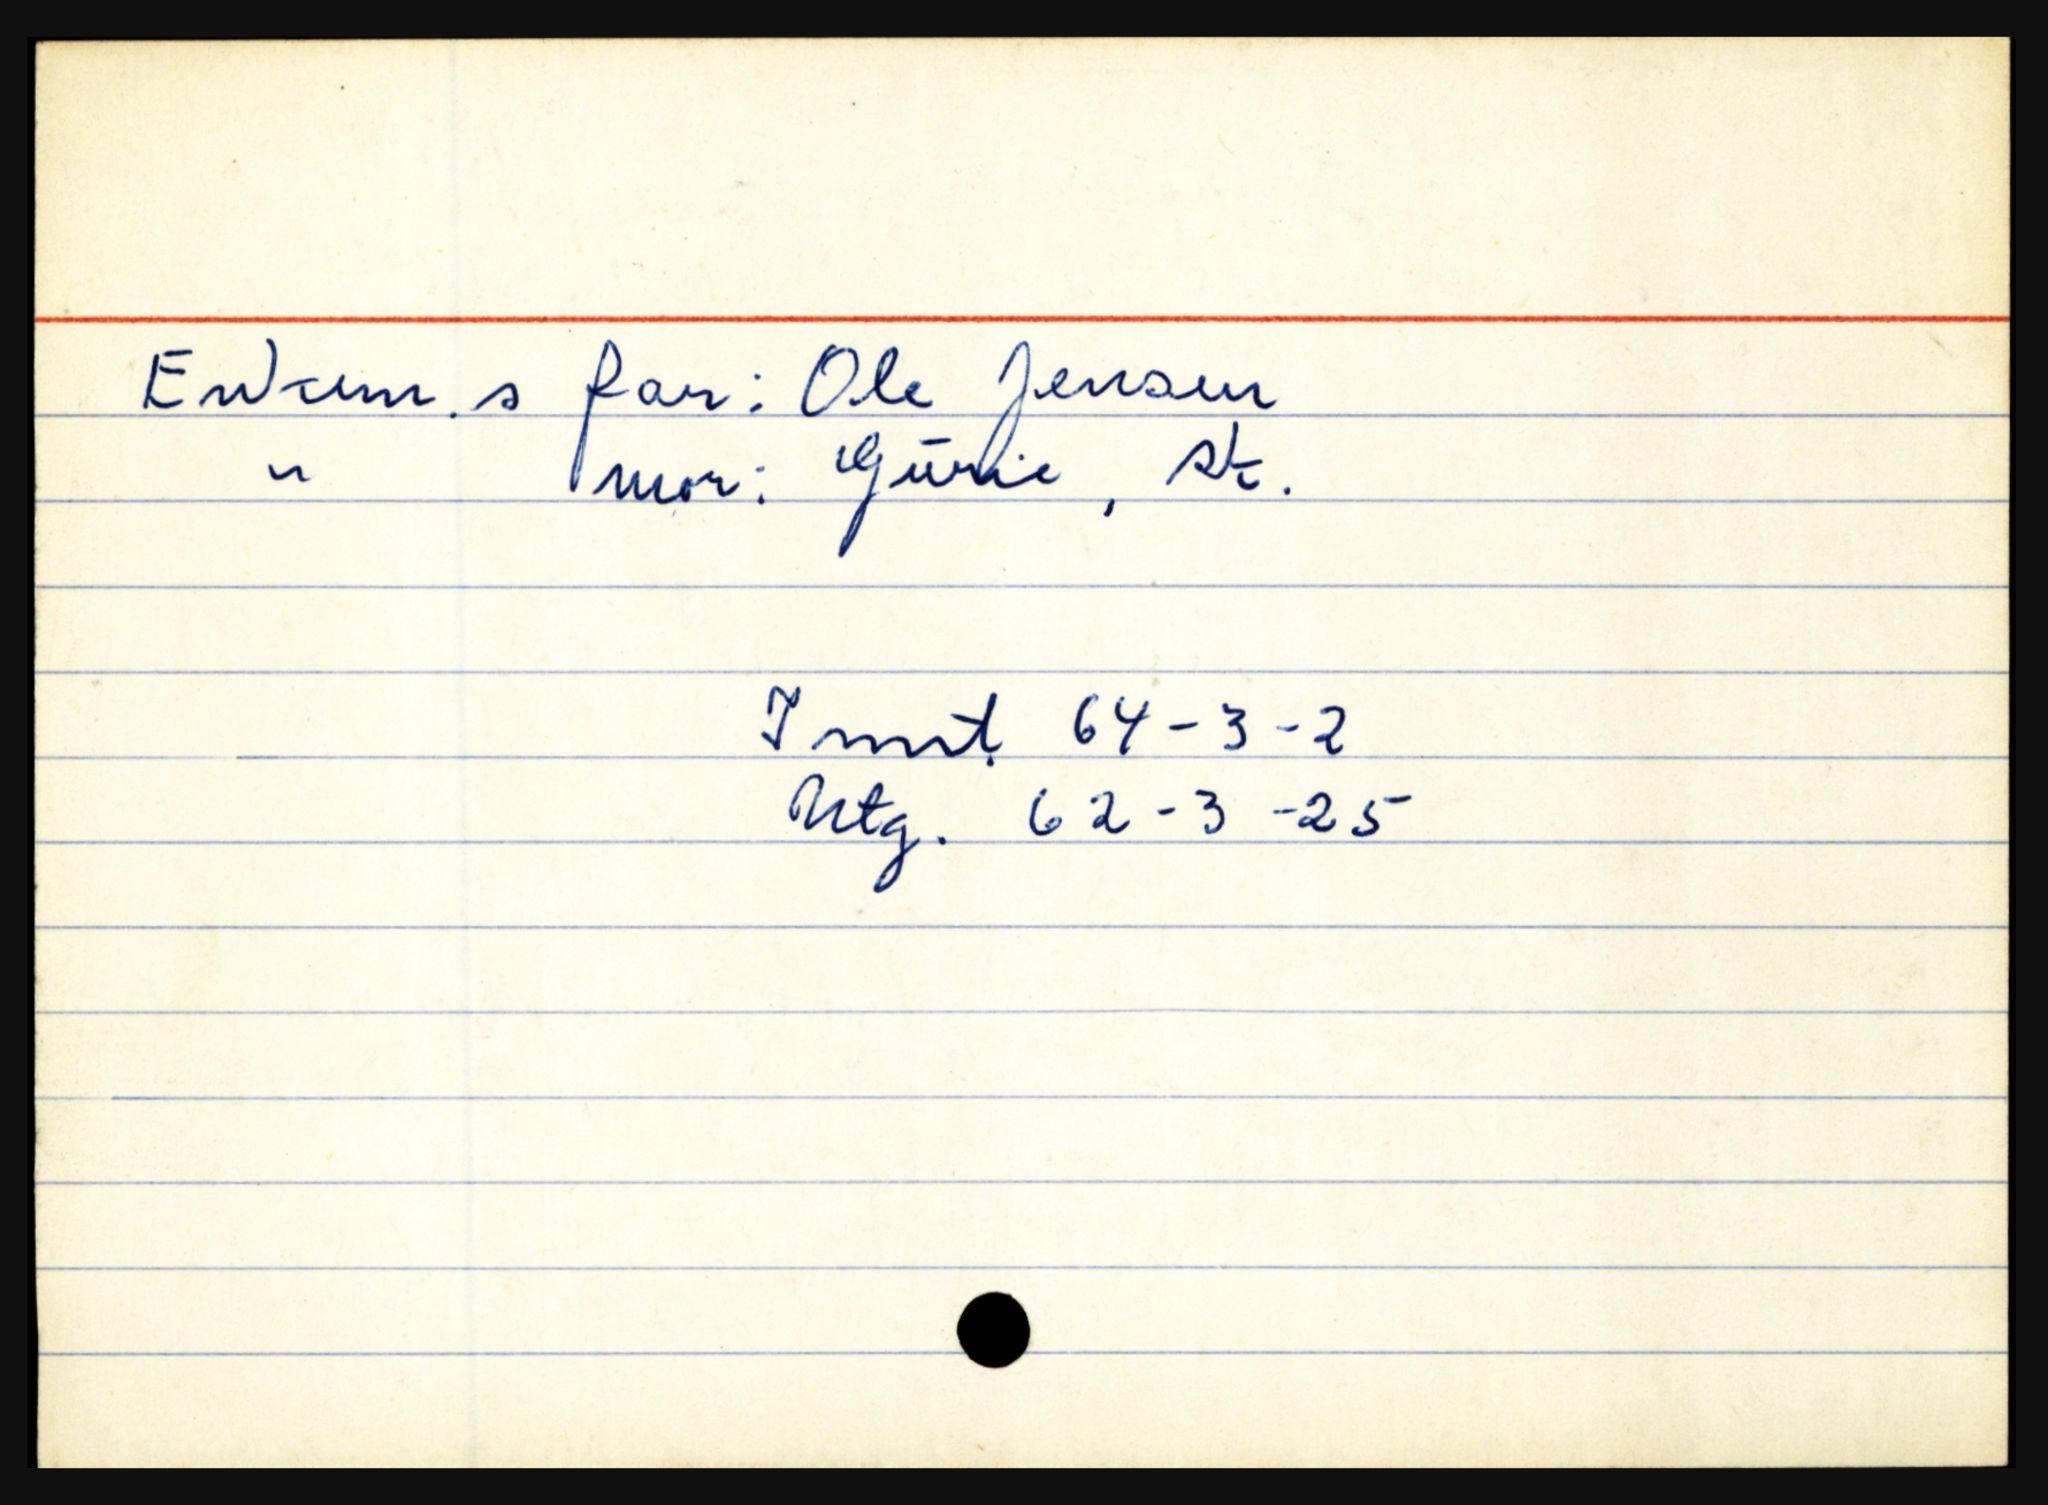 Enkem.s far: Ole Jensen
" mor: Gurie, st.
Innt. 64-3-2
Utg. 62-3-25